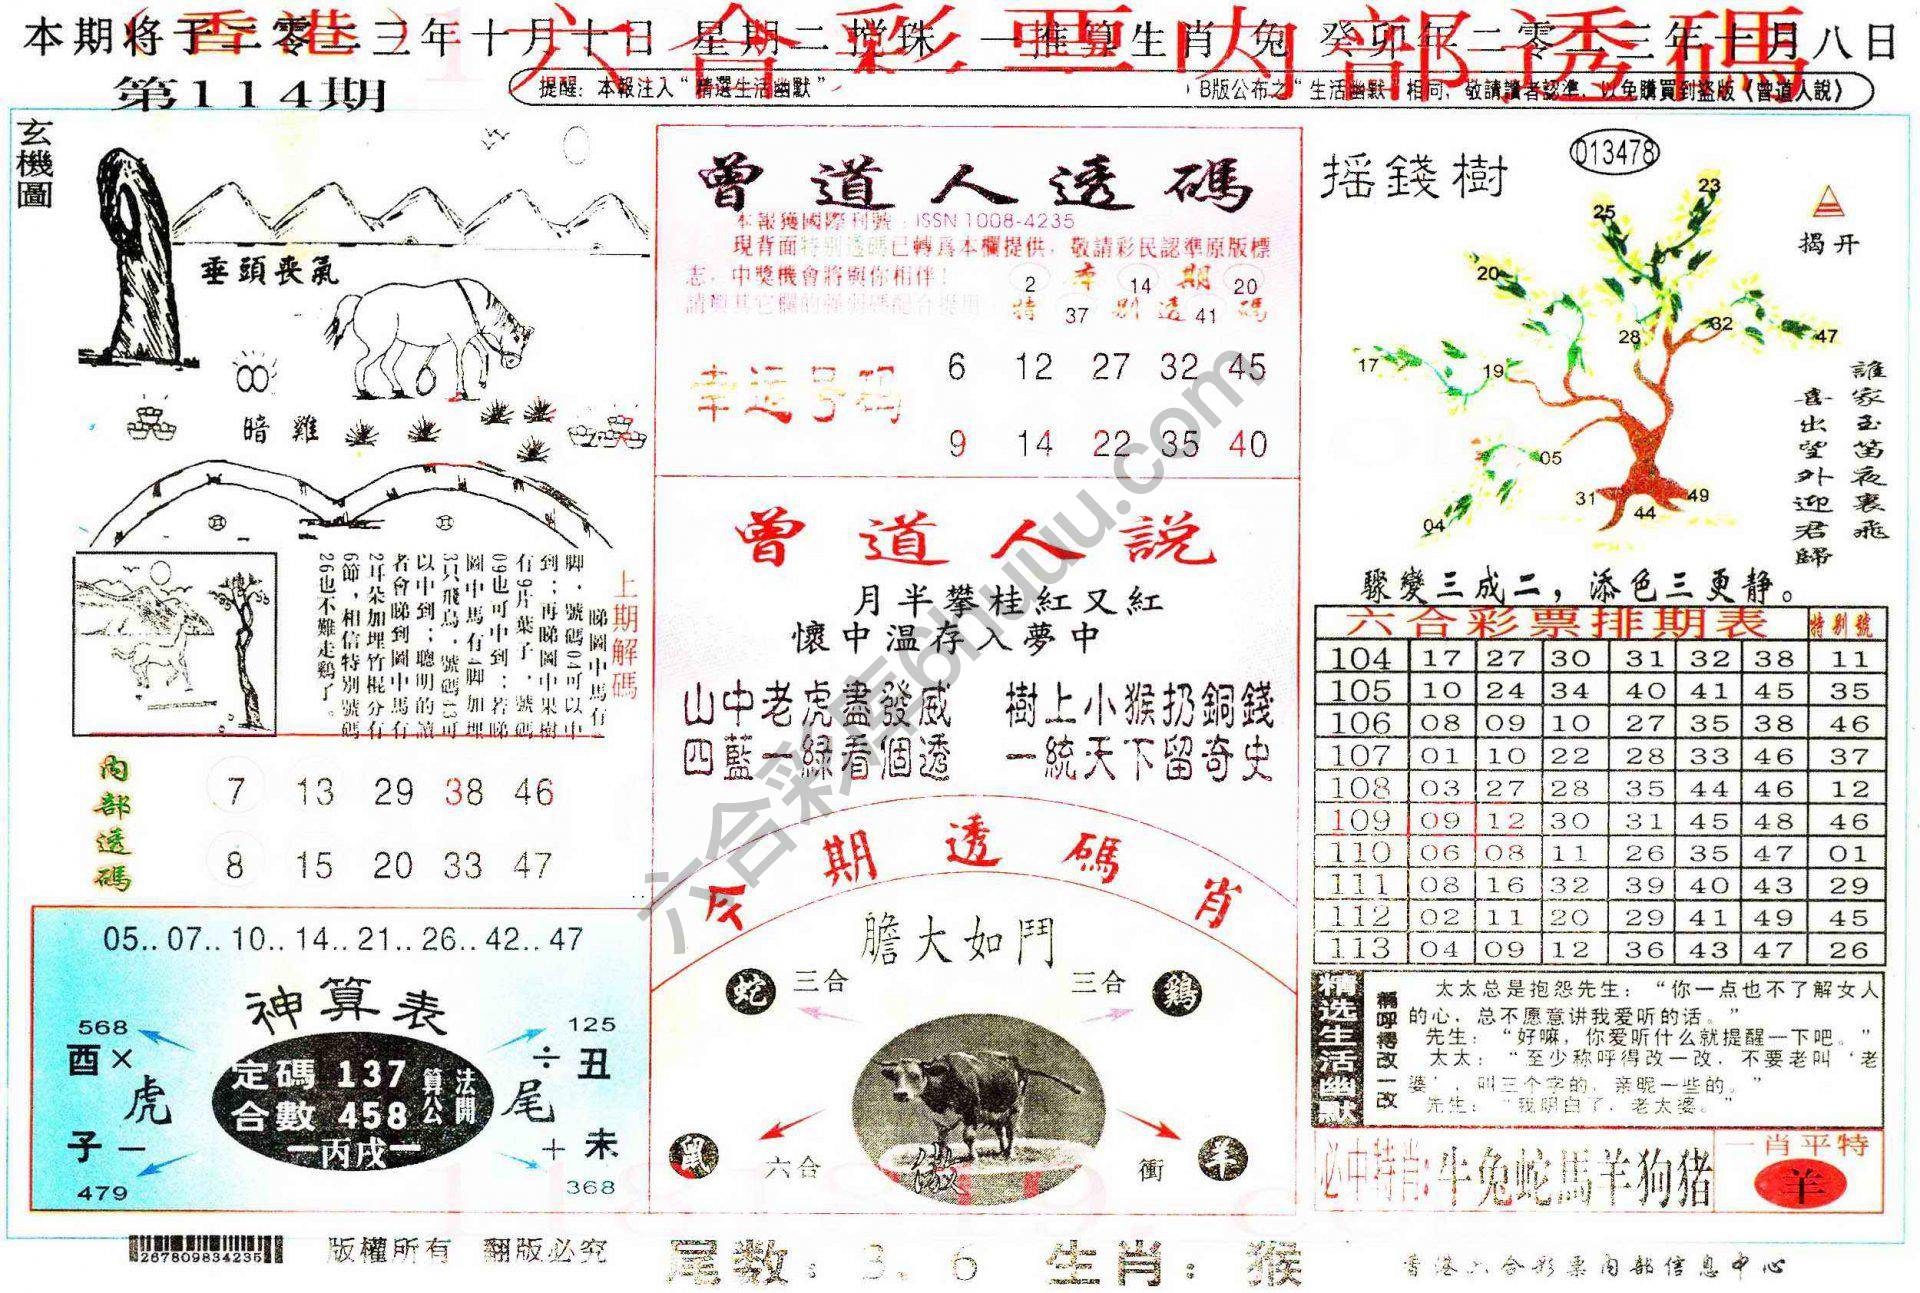 (香港)六合彩票内部透碼
本期将于二零二三年十月十日 星期二搅珠 一推算生肖 兔 癸卯年二零二三年十月八日
第114期
提醒：本報注入“精選生活幽默”
B版公布之“生活幽默”相同，敬請讀者認準，以免購買到盗版《曾道人說》
玄機圖
垂頭丧氣
暗雞
上期解碼
睇圖中馬有
脚，號碼04可以中
到；再睇圖中果樹
有9片葉子，號碼
09也可中到；若睇
圖中馬有4脚加埋
3只飛鳥，號碼43可
以中到；聰明的讀
者會睇到圖中馬有
2耳朵加埋竹棍分有
6節，相信特别號碼
26也不難走鷄了。
内部透碼
7 13 29 38 46
8 15 20 33 47
05..07..10..14..21..26..42..47
神算表
568
酉×
虎
子－
479
定碼 137
合數 458
算公
法開
一丙戌一
125
÷丑
尾
＋未
368
267809834235
版權所有 翻版必究
曾道人透碼
本報獲國際刊號：ISSN 1008-4235
現背面特别透碼已轉爲本欄提供，敬請彩民認準原版標
志，中獎機會將與你相伴！
本期
特别透碼
2 14 20
37 41
幸运号码
6 12 27 32 45
9 14 22 35 40
曾道人説
月半攀桂紅又紅
懷中温存入夢中
山中老虎盡發威 樹上小猴扔銅錢
四藍一緑看個透 一統天下留奇史
今期透碼肖
膽大如鬥
蛇 三合 三合 鷄
鼠 六合 衝 羊
傲
尾数：3、6 生肖：猴
摇錢樹
013478
揭开
23
25
20
28
32
47
17
19
05
31
49
44
04
誰家玉笛夜裏飛
喜出望外迎君歸
驟變三成二，添色三更静。
六合彩票排期表 特别號
104 17 27 30 31 32 38 11
105 10 24 34 40 41 45 35
106 08 09 10 27 35 38 46
107 01 10 22 28 33 46 37
108 03 27 28 35 44 46 12
109 09 12 30 31 45 48 46
110 06 08 11 26 35 47 01
111 08 16 32 39 40 43 29
112 02 11 20 29 41 49 45
113 04 09 12 36 43 47 26
精选生活幽默
稱呼得改一改
太太总是抱怨先生：“你一点也不了解女人
的心，总不愿意讲我爱听的话。”
先生：“好嘛，你爱听什么就提醒一下吧。”
太太：“至少称呼得改一改，不要老叫‘老
婆’，叫三个字的，亲昵一些的。”
先生：“我明白了，老太婆。”
必中特肖：牛兔蛇馬羊狗猪
一肖平特
羊
香港六合彩票内部信息中心
六合彩库6huuu.com